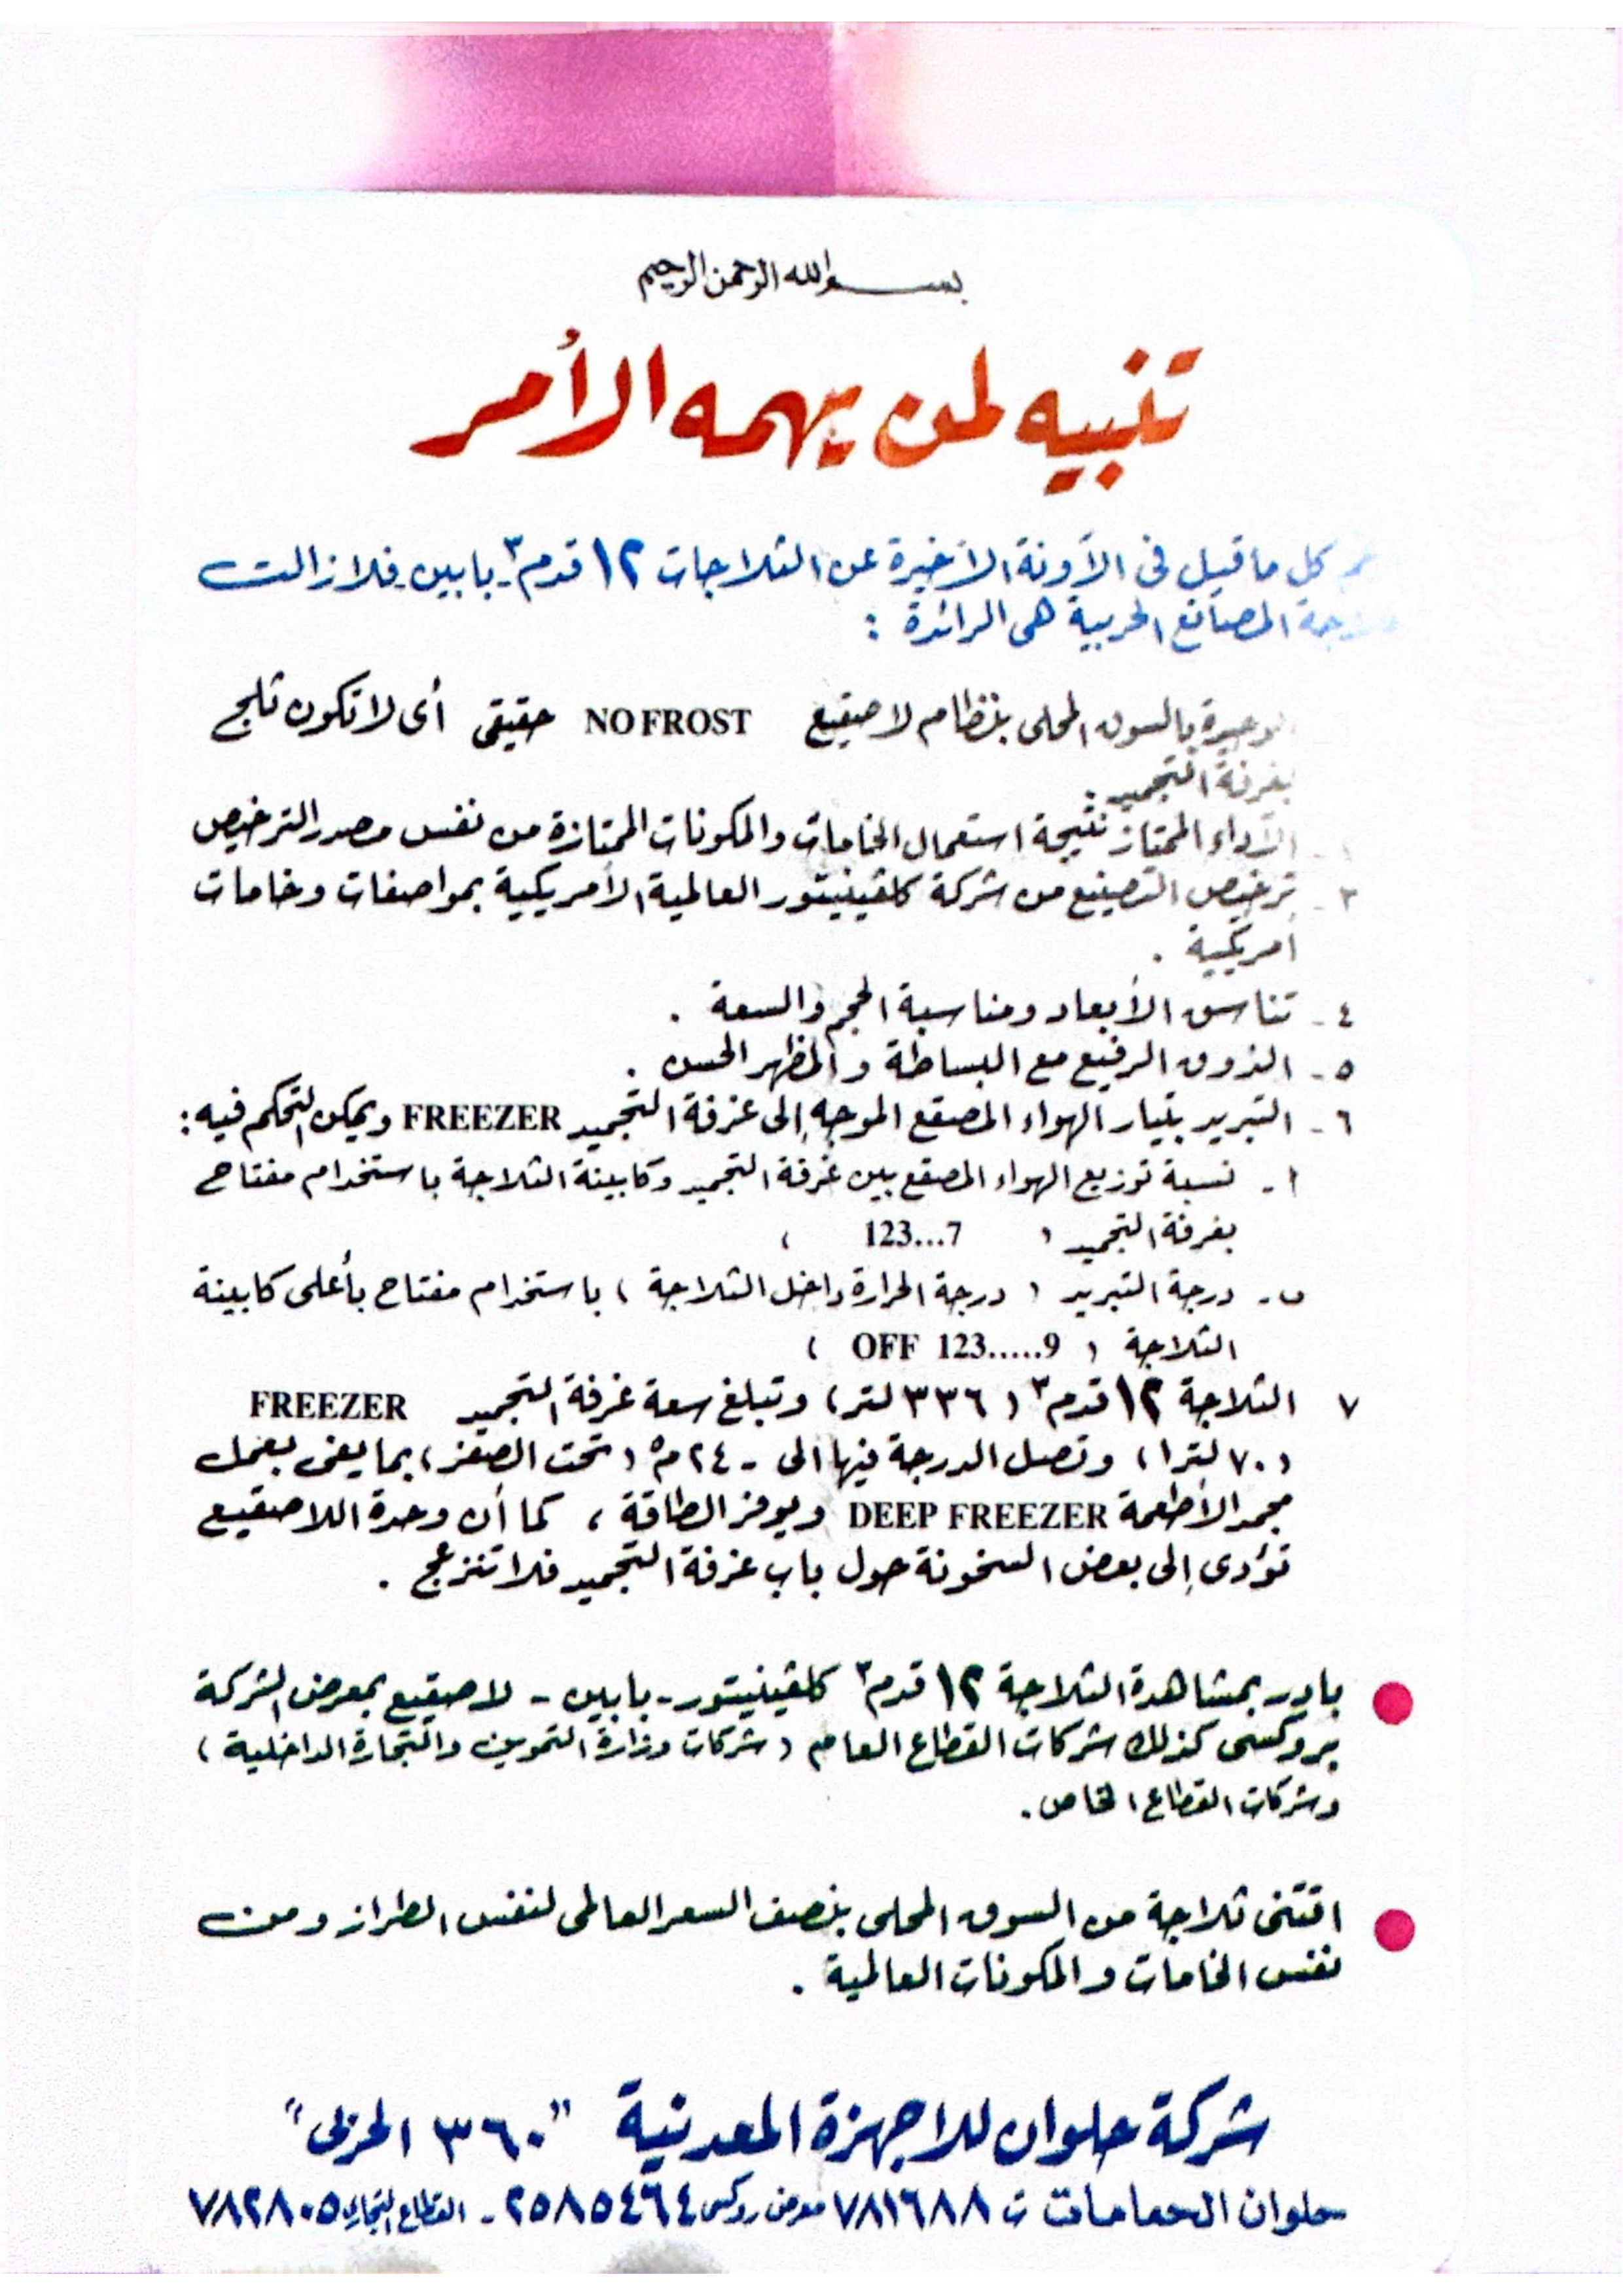 بسم الله الرحمن الرحيم
تنبيه لمن يهمه الأمر
كل ما قيل فى الآونة الأخيرة عن الثلاجات ١٢ قدم٣ - بابين - فلازالت
المصانع الحربية هى الرائدة :
بالسوق المحلى بنظام لا صقيع NO FROST حقيقى أى لا تكون ثلج
بغرفة التجميد .
الأداء الممتاز نتيجة استعمال الخامات والمكونات الممتازة من نفس مصدر الترخيص
٣ - ترخيص التصنيع من شركة كلڤينيتور العالمية الأمريكية بمواصفات وخامات
أمريكية .
٤ - تناسق الأبعاد ومناسبة الحجم والسعة .
٥ - الذوق الرفيع مع البساطة والمظهر الحسن .
٦ - التبريد بتيار الهواء المصقع الموجه إلى غرفة التجميد FREEZER ويمكن التحكم فيه :
أ - نسبة توزيع الهواء المصقع بين غرفة التجميد وكابينة الثلاجة باستخدام مفتاح
بغرفة التجميد ( 123...7 )
ب - درجة التبريد ( درجة الحرارة داخل الثلاجة ) باستخدام مفتاح بأعلى كابينة
الثلاجة ( OFF 123.....9 )
٧ الثلاجة ١٢ قدم٣ ( ٣٣٦ لتر ) وتبلغ سعة غرفة التجميد FREEZER
( ٧٠ لترا ) وتصل الدرجة فيها الى - ٢٤ م° ( تحت الصفر ) بما يفى بعمل
مجمد الأطعمة DEEP FREEZER ويوفر الطاقة ، كما أن وحدة اللاصقيع
تؤدى إلى بعض السخونة حول باب غرفة التجميد فلا تنزعج .
بادر بمشاهدة الثلاجة ١٢ قدم٣ كلڤينيتور - بابين - لا صقيع بمعرض الشركة
بروكسى كذلك شركات القطاع العام ( شركات وزارة التموين والتجارة الداخلية )
وشركات القطاع الخاص .
اقتنى ثلاجة من السوق المحلى بنصف السعر العالمى لنفس الطراز ومن
نفس الخامات والمكونات العالمية .
شركة حلوان للاجهزة المعدنية "٣٦٠ الحربى"
حلوان الحمامات ت ٧٨١٦٨٨ معرض روكسى ٢٥٨٥٤٦٤ - القطاع التجارى ٧٨٢٨٠٥